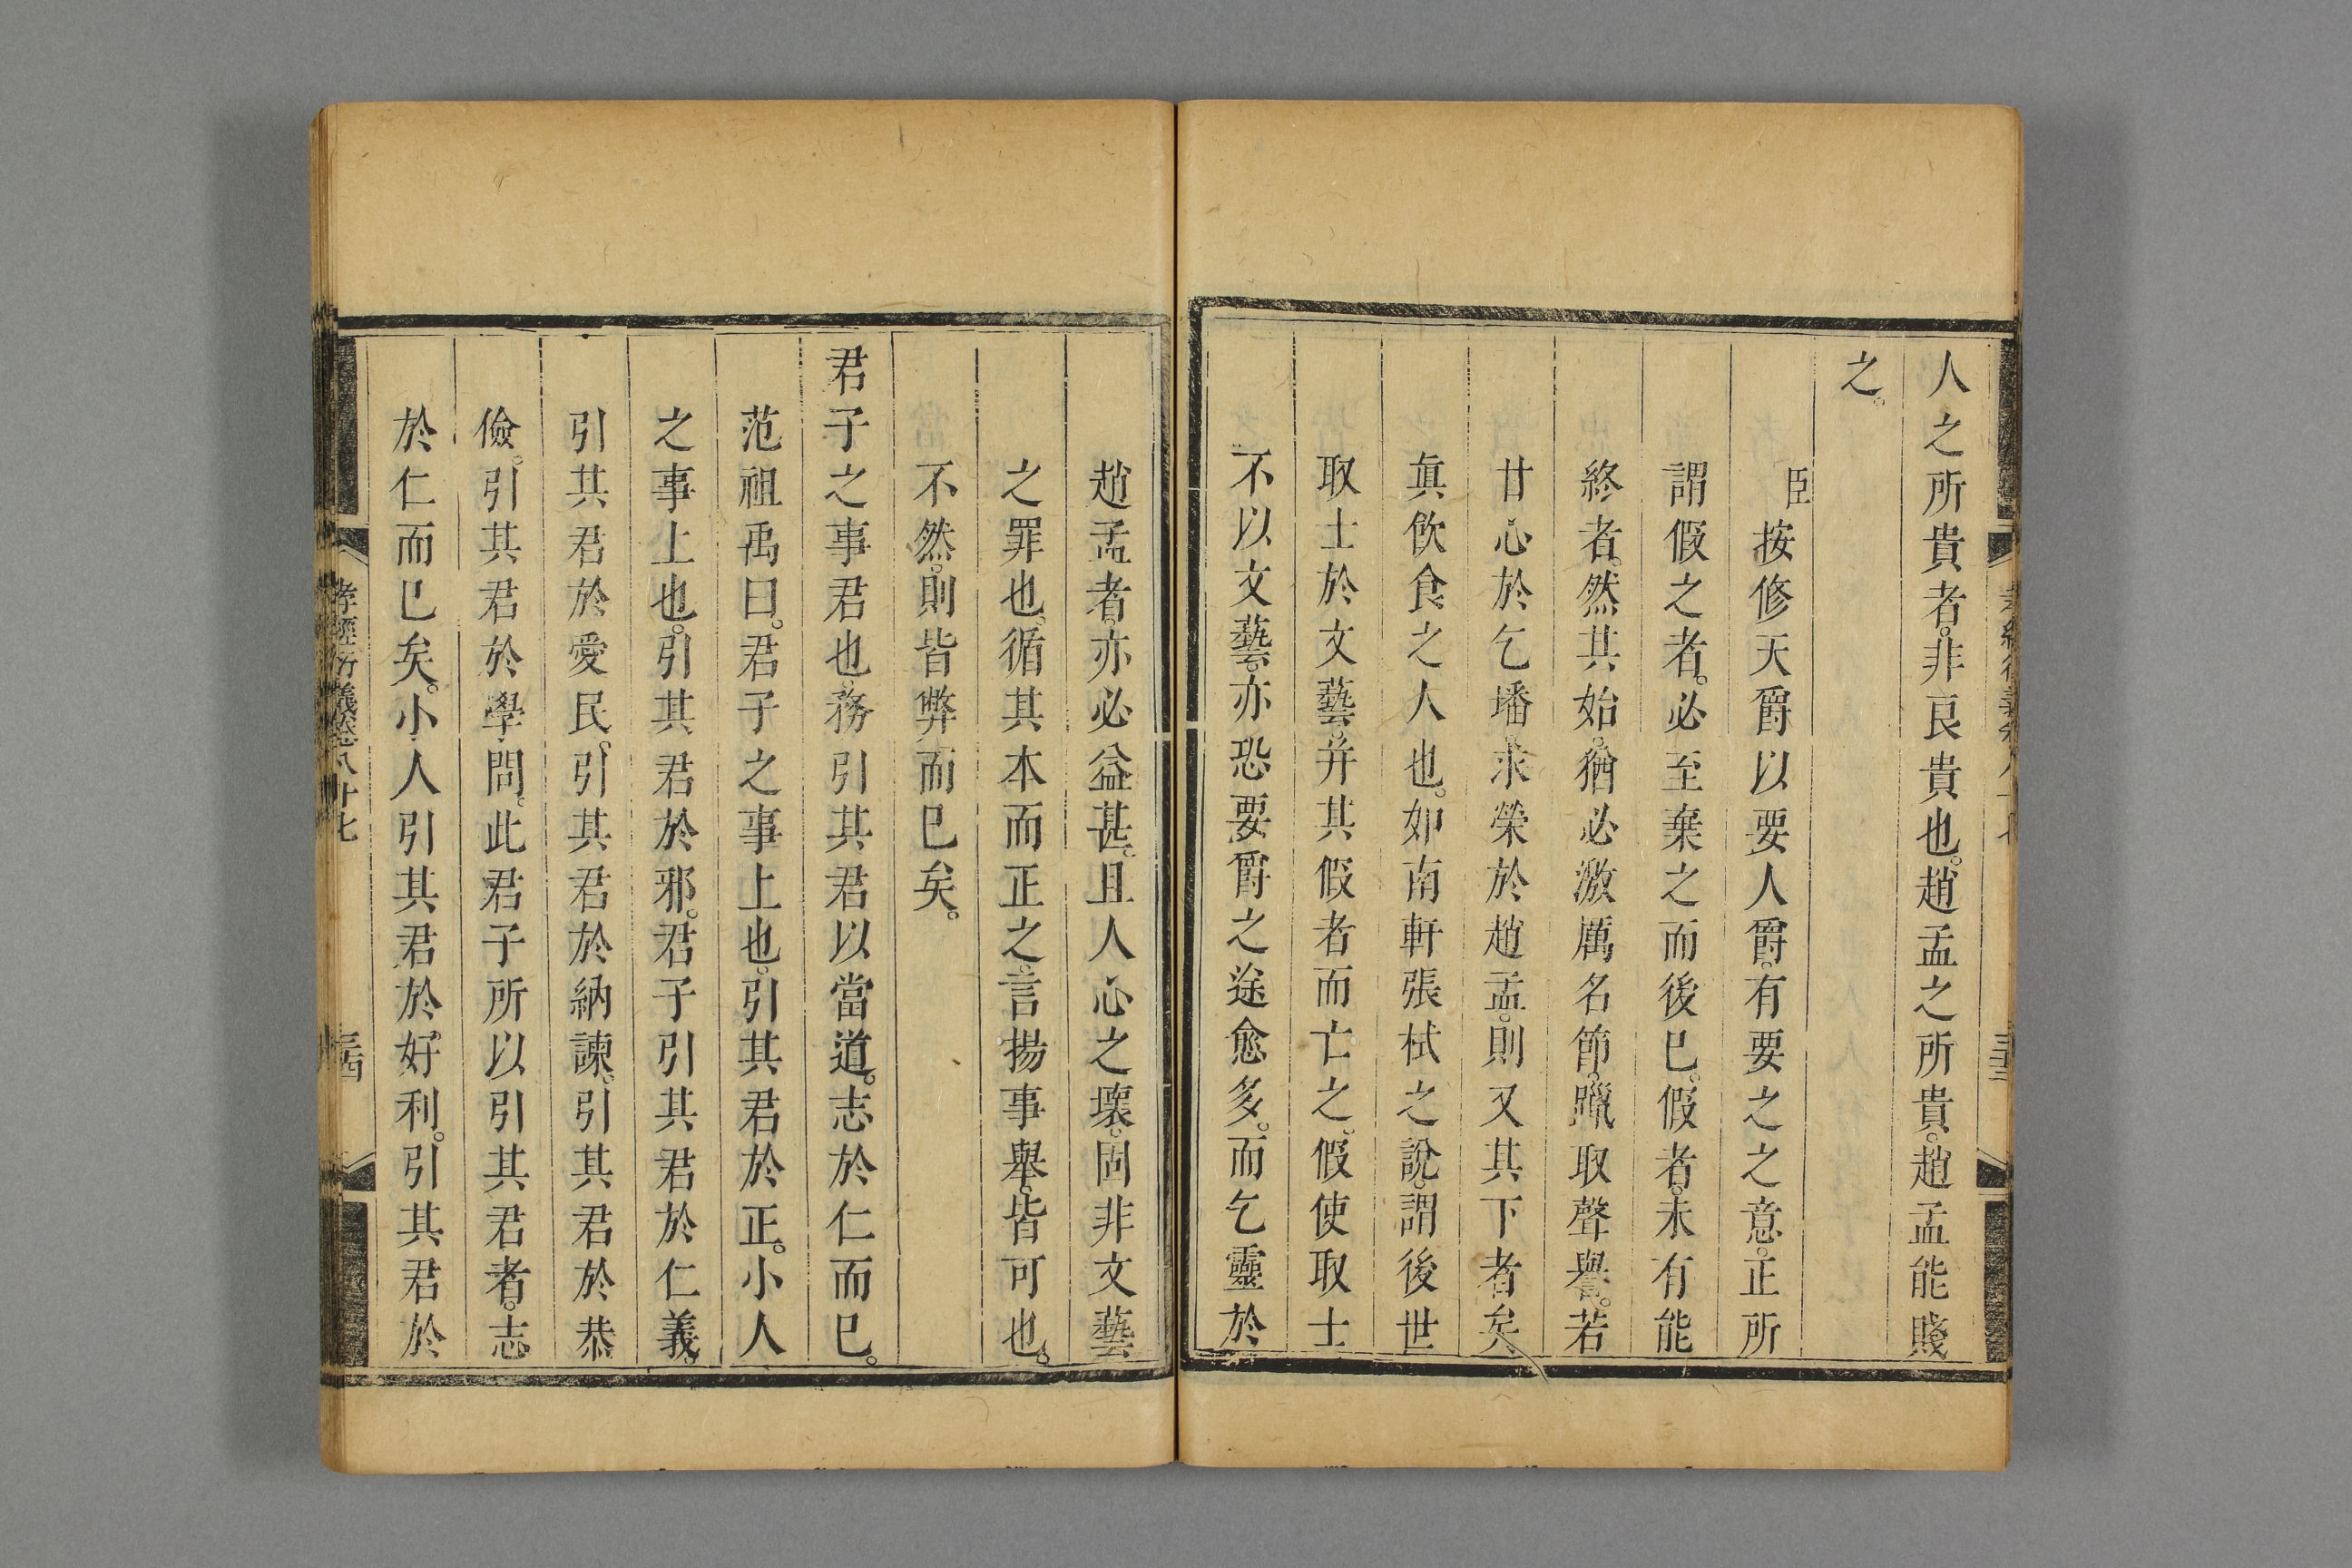 人之所貴者。非良貴也。趙孟之所貴。趙孟能賤
之。
臣按修天爵以要人爵。有要之之意。正所
謂假之者。必至棄之而後已。假者。未有能
終者。然其始。猶必激厲名節。躐取聲譽。若
甘心於乞墦。求榮於趙孟。則又其下者矣
眞飲食之人也。如南軒張栻之說。謂後世
取士於文藝。并其假者而亡之。假使取士
不以文藝。亦恐要爵之途愈多。而乞靈於
趙孟者。亦必益甚。且人心之壞。固非文藝
之罪也。循其本而正之。言揚事舉。皆可也。
不然。則皆弊而已矣。
君子之事君也。務引其君以當道。志於仁而已。
范祖禹曰。君子之事上也。引其君於正。小人
之事上也。引其君於邪。君子引其君於仁義。
引其君於愛民。引其君於納諫。引其君於恭
儉。引其君於學問。此君子所以引其君者。志
於仁而已矣。小人引其君於好利。引其君於
孝經衍義卷八十七
三四